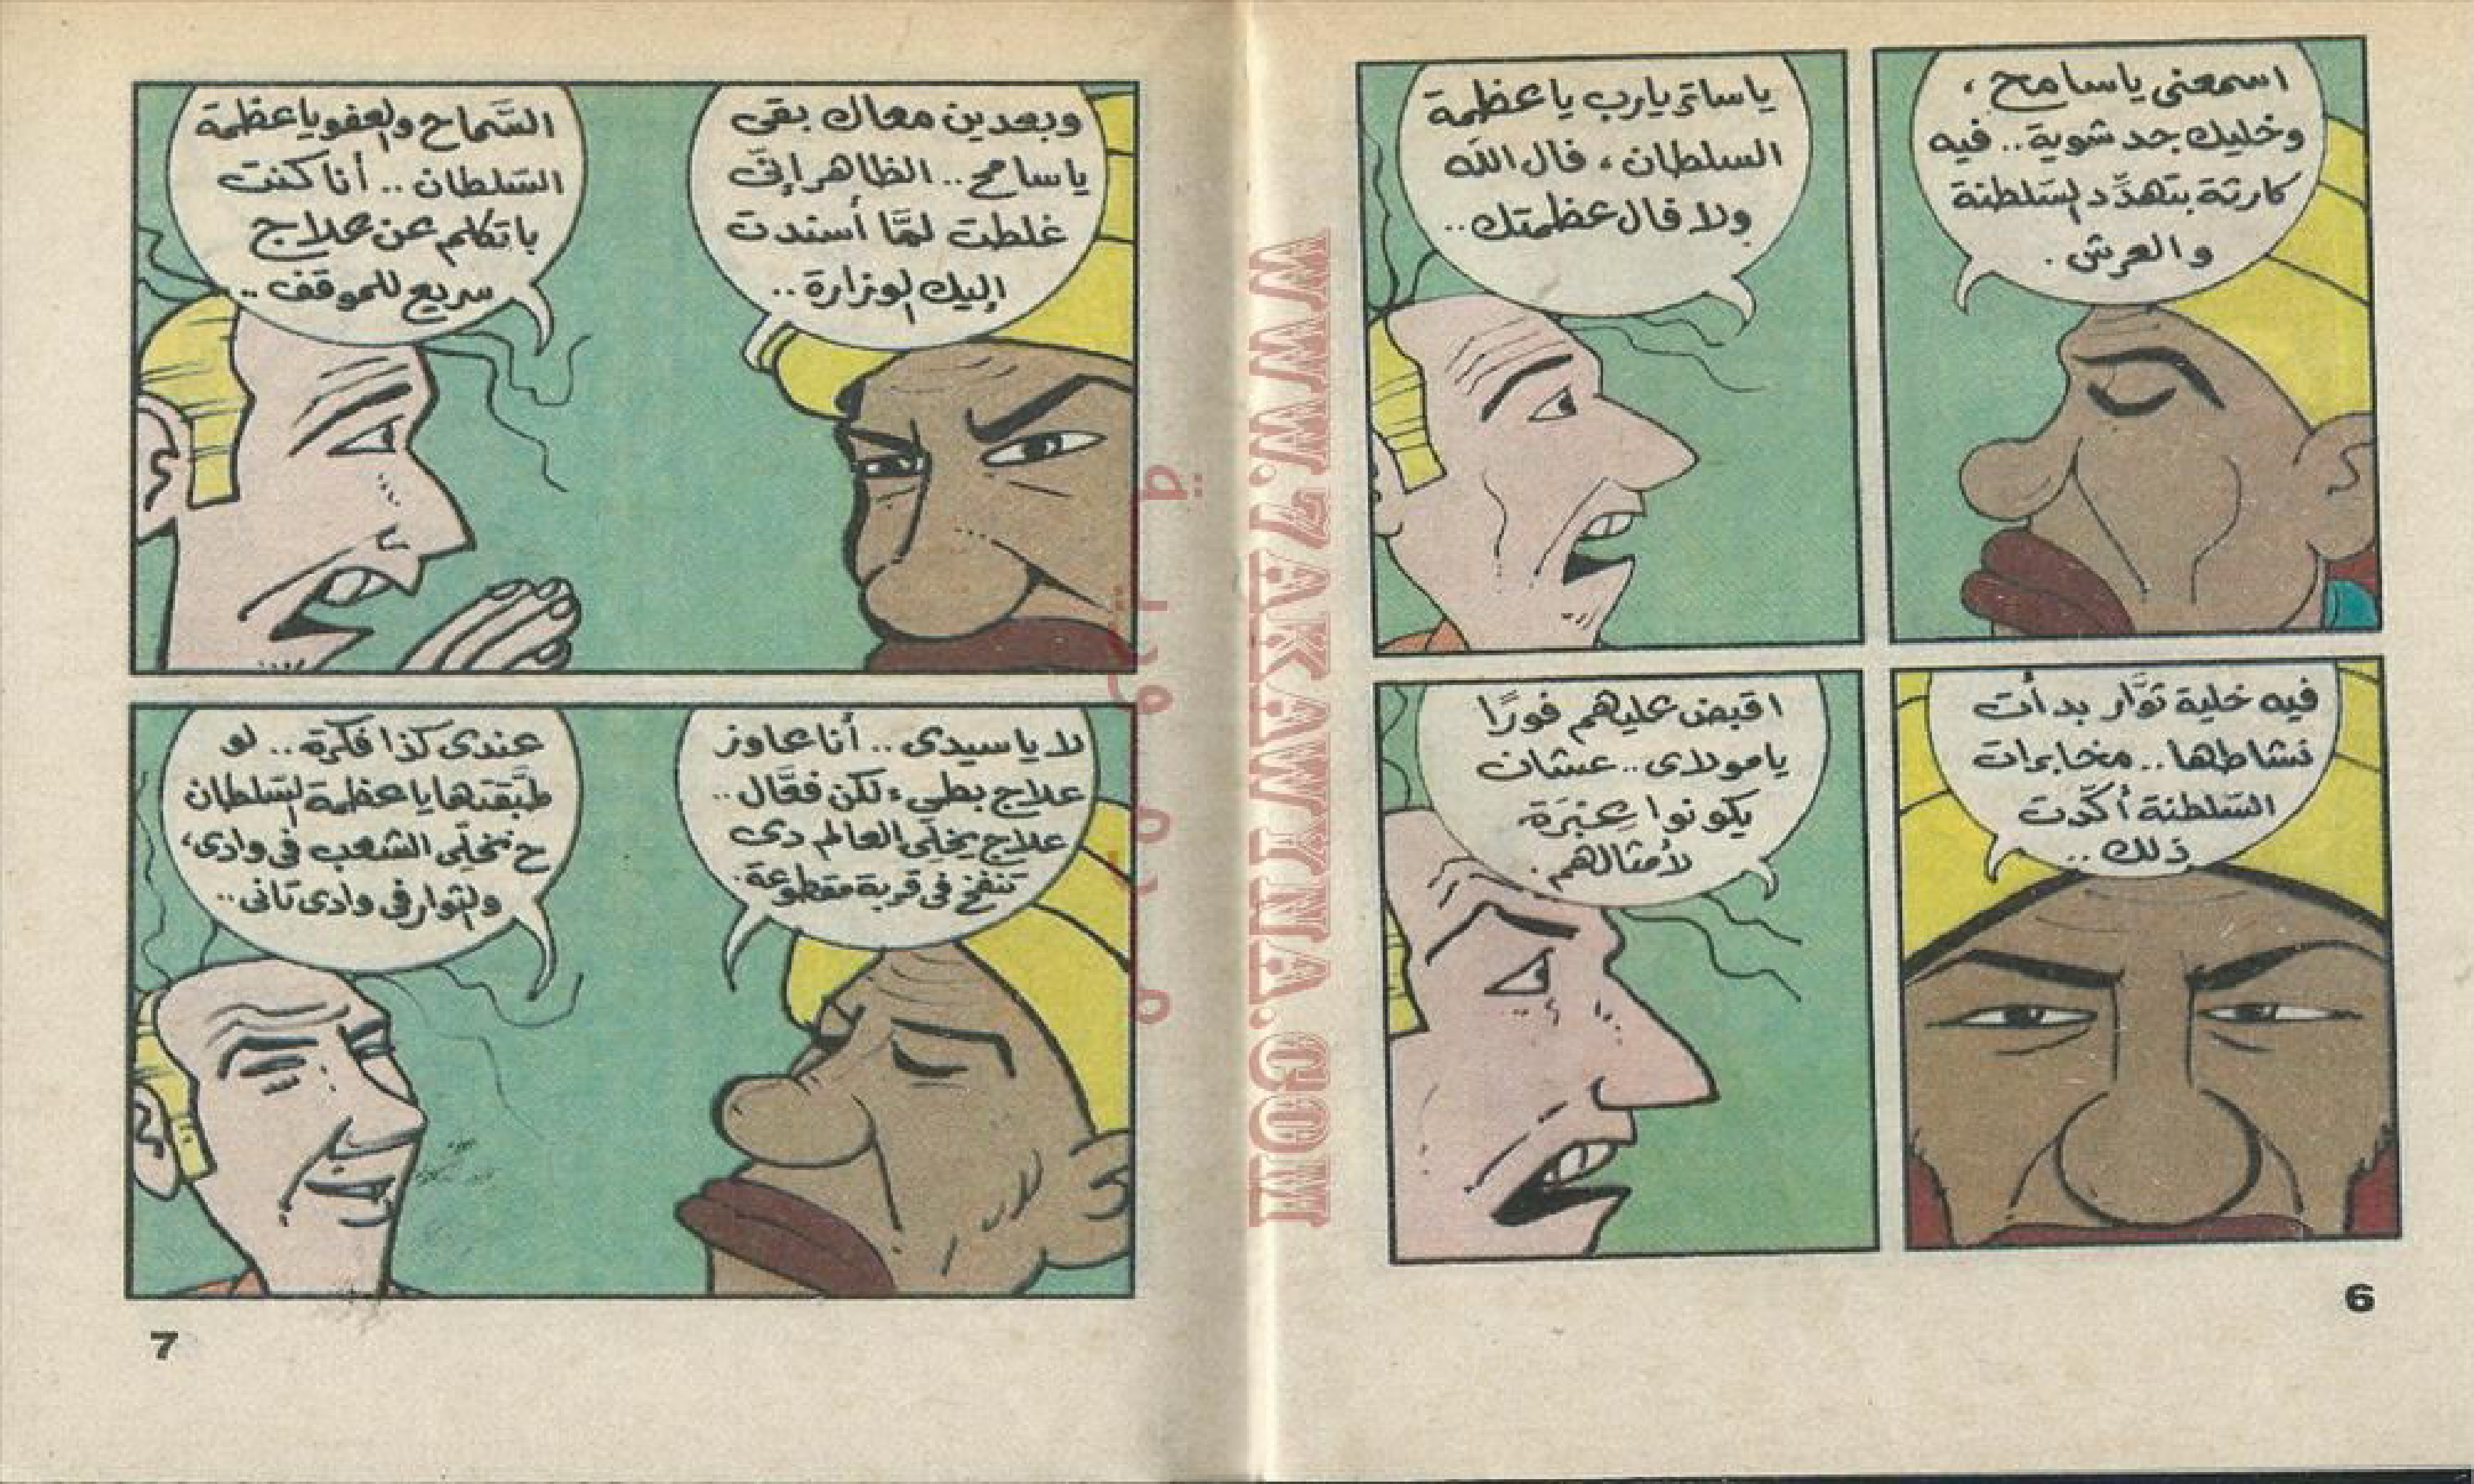 اسمعنى ياسامح،
وخليك جد شوية.. فيه
كارثة بتهدّد السّلطنة
والعرش.
ياساتر يارب ياعظمة
السلطان، قال الله
ولا قال عظمتك..
فيه خلية ثوَّار بدأت
نشاطها.. مخابرات
السّلطنة أكّدت
ذلك..
اقبض عليهم فورًا
يامولاى.. عشان
يكونوا عِبَرة
لأمثالهم.
6
وبعدين معاك بقى
ياسامح.. الظاهر إنّى
غلطت لمَّا أسندت
إليك الوزارة..
السَّماح والعفو ياعظمة
السّلطان.. أنا كنت
باتكلم عن علاج
سريع للموقف..
لا ياسيدى.. أنا عاوز
علاج بطىء لكن فعَّال..
علاج يخلّى العالم دى
تنفخ فى قربة مقطوعة.
عندى كذا فكرة.. لو
طبَّقتها ياعظمة السّلطان
ح تخلّى الشعب فى وادى،
والثوار فى وادى تانى..
7
WWW.7AKAWYNA.COM